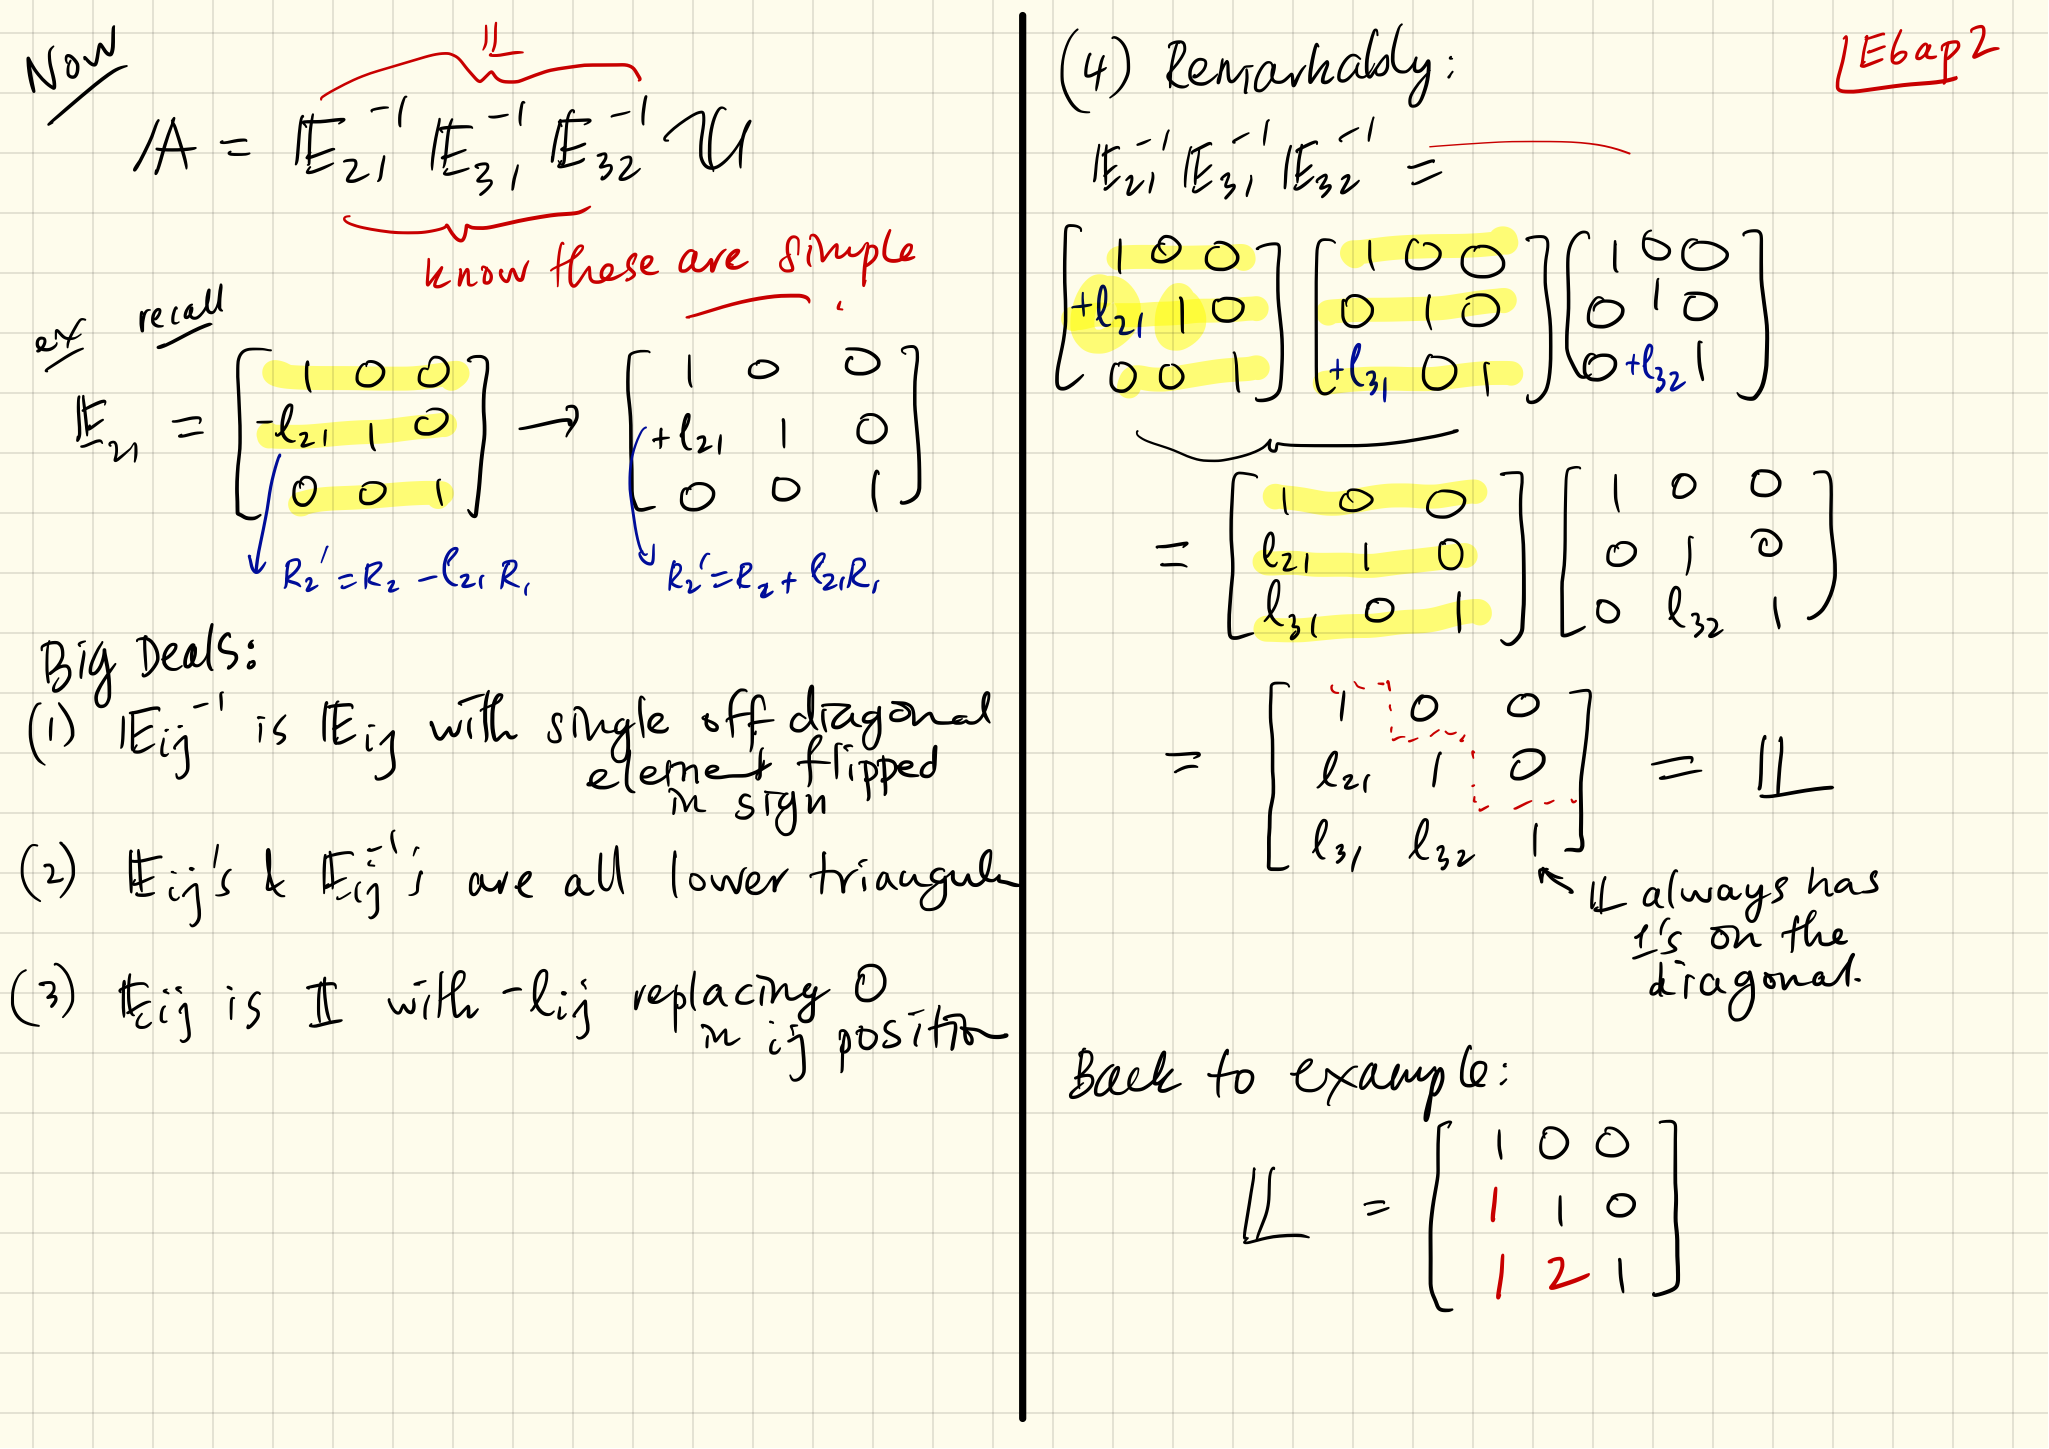 Now
𝕃
𝔸 = 𝔼₂₁⁻¹ 𝔼₃₁⁻¹ 𝔼₃₂⁻¹ 𝕌
know these are simple.
ex recall
𝔼₂₁ = [1 0 0; -l₂₁ 1 0; 0 0 1] → [1 0 0; +l₂₁ 1 0; 0 0 1]
R₂' = R₂ - l₂₁ R₁
R₂' = R₂ + l₂₁ R₁
Big Deals:
(1) 𝔼ij⁻¹ is 𝔼ij with single off diagonal
element flipped
in sign
(2) 𝔼ij's & 𝔼ij⁻¹'s are all lower triangular
(3) 𝔼ij is 𝕀 with -lij replacing 0
in ij position
LE6ap2
(4) Remarkably:
𝔼₂₁⁻¹ 𝔼₃₁⁻¹ 𝔼₃₂⁻¹ =
[1 0 0; +l₂₁ 1 0; 0 0 1] [1 0 0; 0 1 0; +l₃₁ 0 1] [1 0 0; 0 1 0; 0 +l₃₂ 1]
= [1 0 0; l₂₁ 1 0; l₃₁ 0 1] [1 0 0; 0 1 0; 0 l₃₂ 1]
= [1 0 0; l₂₁ 1 0; l₃₁ l₃₂ 1] = 𝕃
𝕃 always has
1's on the
diagonal.
Back to example:
𝕃 = [1 0 0; 1 1 0; 1 2 1]